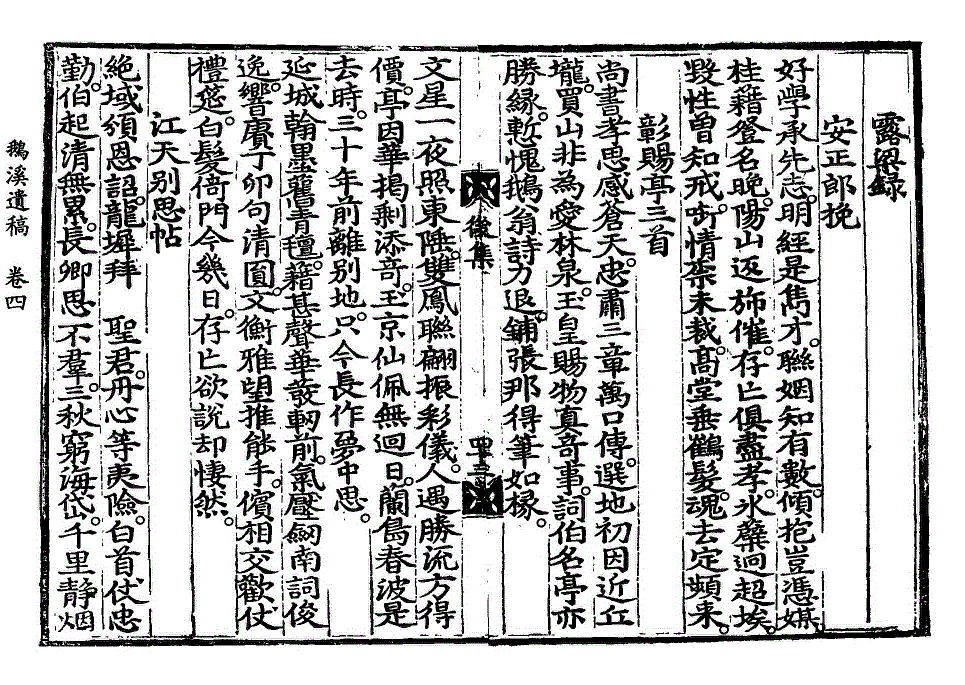 露梁錄
安正郎挽
好學承先志。明經是雋才。聯姻知有數。傾抱豈馮媒。
桂籍登名晚。陽山返旆催。存亡俱盡孝。氷蘗迥超埃。
毀性曾知戒。哀情柰未裁。高堂垂鶴髮。魂去定頻来。
彰賜亭三首
尚書孝忠感蒼天。忠肅三章萬口傳。選地初因近丘
壠。買山非為愛林泉。玉皇賜物真奇事。詞伯名亭亦
勝緣。慙愧鵝翁詩力退。鋪張那得筆如椽。
後集
文星一夜照東陲。雙鳳聯翩振彩儀。人遇勝流方得
價。亭因華揭剩添奇。玉京仙佩無迴日。蘭島春波是
去時。三十年前離別地。只今長作夢中思。
延城翰墨襲青氊。藉甚聲華發軔前。氣壓劒南詞俊
逸。響賡丁卯句清圓。文衡雅望推能手。儐相交歡仗
禮筵。白髮倚門今幾日。存亡欲說却悽然。
江天別思帖
絶域頒恩詔。龍墀拜 聖君。丹心等夷險。白首仗忠
勤。伯起清無累。長卿思不羣。三秋窮海岱。千里静烟
鵝溪遺稿 卷四